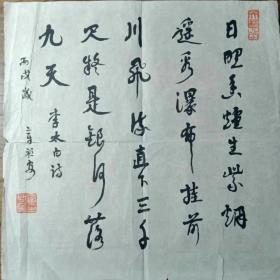 日照香爐生紫烟
遥看瀑布挂前
川飛流直下三千
尺疑是銀河落
九天 李太白詩
丙戌歲 章祖安